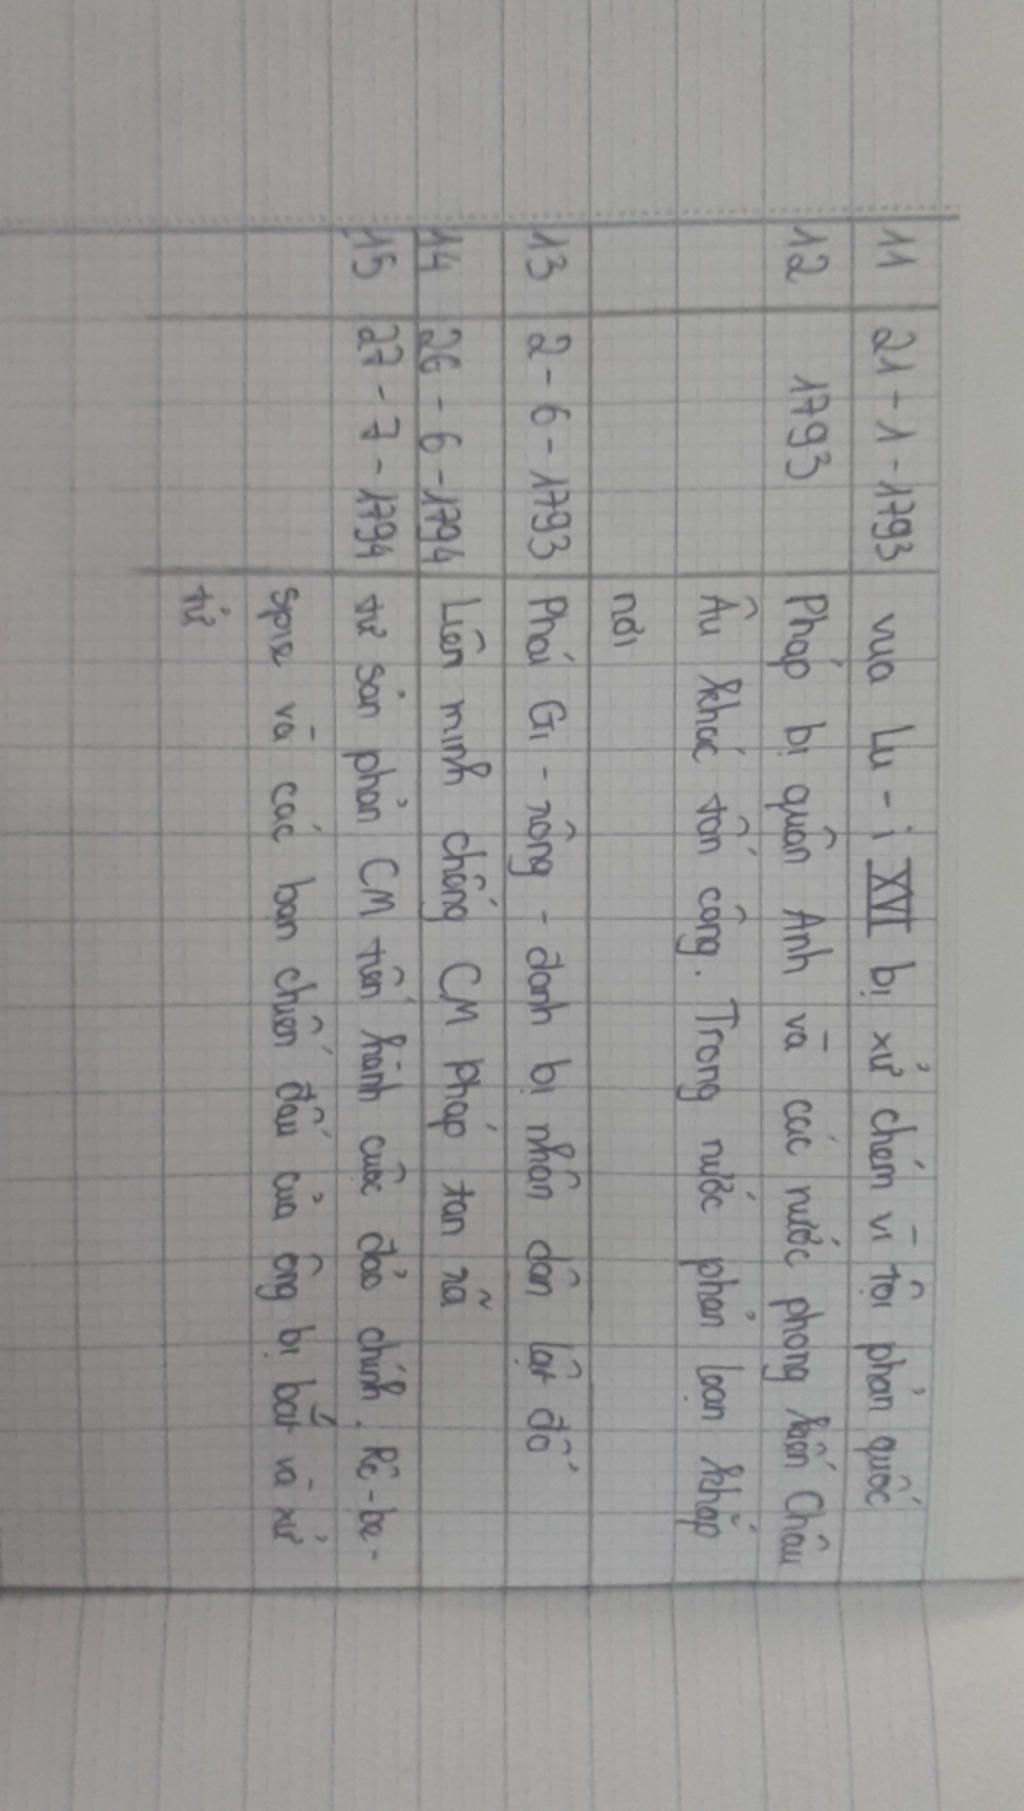 11 21-1-1793 vua Lu-i XVI bị xử chém vì tội phản quốc
12 1793 Pháp bị quân Anh và các nước phong kiến Châu
Âu khác tấn công. Trong nước phản loạn khắp
nơi
13 2-6-1793 Phái Gi-rông-đanh bị nhân dân lật đổ
14 26-6-1794 Liên minh chống CM pháp tan rã
15 27-7-1794 tư sản phản CM tiến hành cuộc đảo chính. Rô-be-
spie và các bạn chiến đấu của ông bị bắt và xử
tử